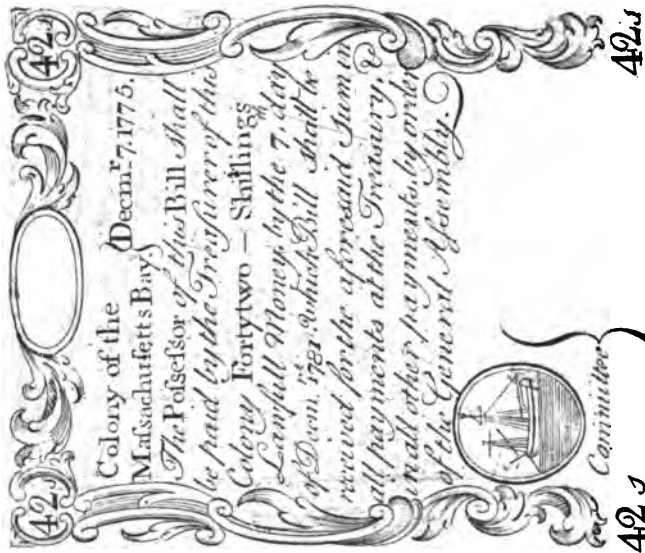 42s 42s
Colony of the
Maſsachuſetts Bay } Decmr. 7. 1775.
The Poſseſsor of this Bill ſhall
be paid by the Treaſurer of this
Colony Fortytwo — Shillings
Lawfull Money by the 7.th day
of Decm. 1781. which Bill ſhall be
received for the aforesaid Sum in
all payments at the Treasury, &
in all other payments by order
of the General Aſsembly.
Committee
42s 42s